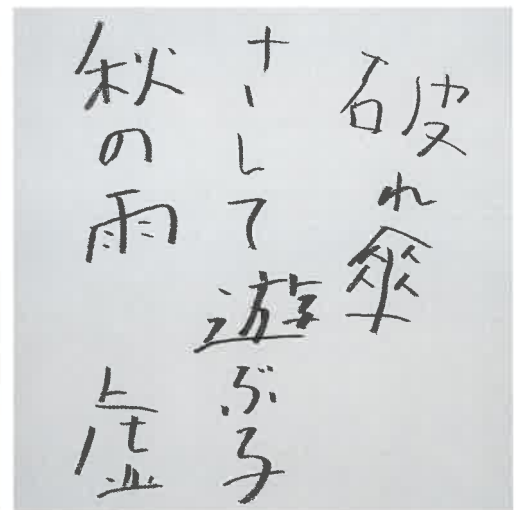 破れ傘
さして遊ぶ子
秋の雨　虚